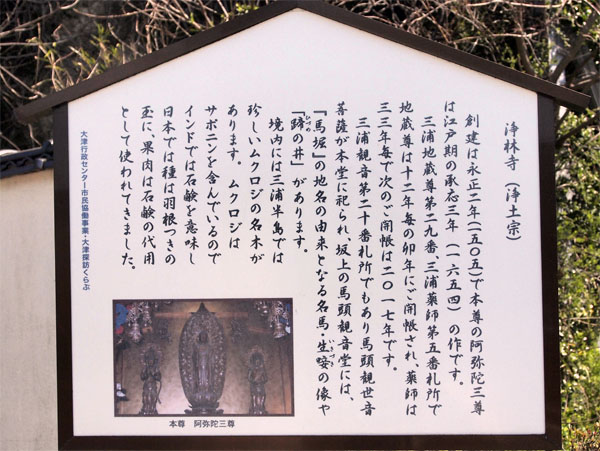 浄林寺（浄土宗）
創建は永正二年（一五〇五）で本尊の阿弥陀三尊
は江戸期の承応三年（一六五四）の作です。
三浦地蔵尊第二九番、三浦薬師第五番札所で
地蔵尊は十二年毎の卯年にご開帳され、薬師は
三三年毎で次のご開帳は二〇一七年です。
三浦観音第二十番札所でもあり馬頭観世音
菩薩が本堂に祀られ、坂上の馬頭観音堂には、
『馬堀』の地名の由来となる名馬・生唼の像や
いきづき
「蹄の井」があります。
ひづめ
境内には三浦半島では
珍しいムクロジの名木が
あります。ムクロジは
サポニンを含んでいるので
インドでは石鹸を意味し
日本では種は羽根つきの
玉に、果肉は石鹸の代用
として使われてきました。
大津行政センター市民協働事業・大津探訪くらぶ
本尊 阿弥陀三尊